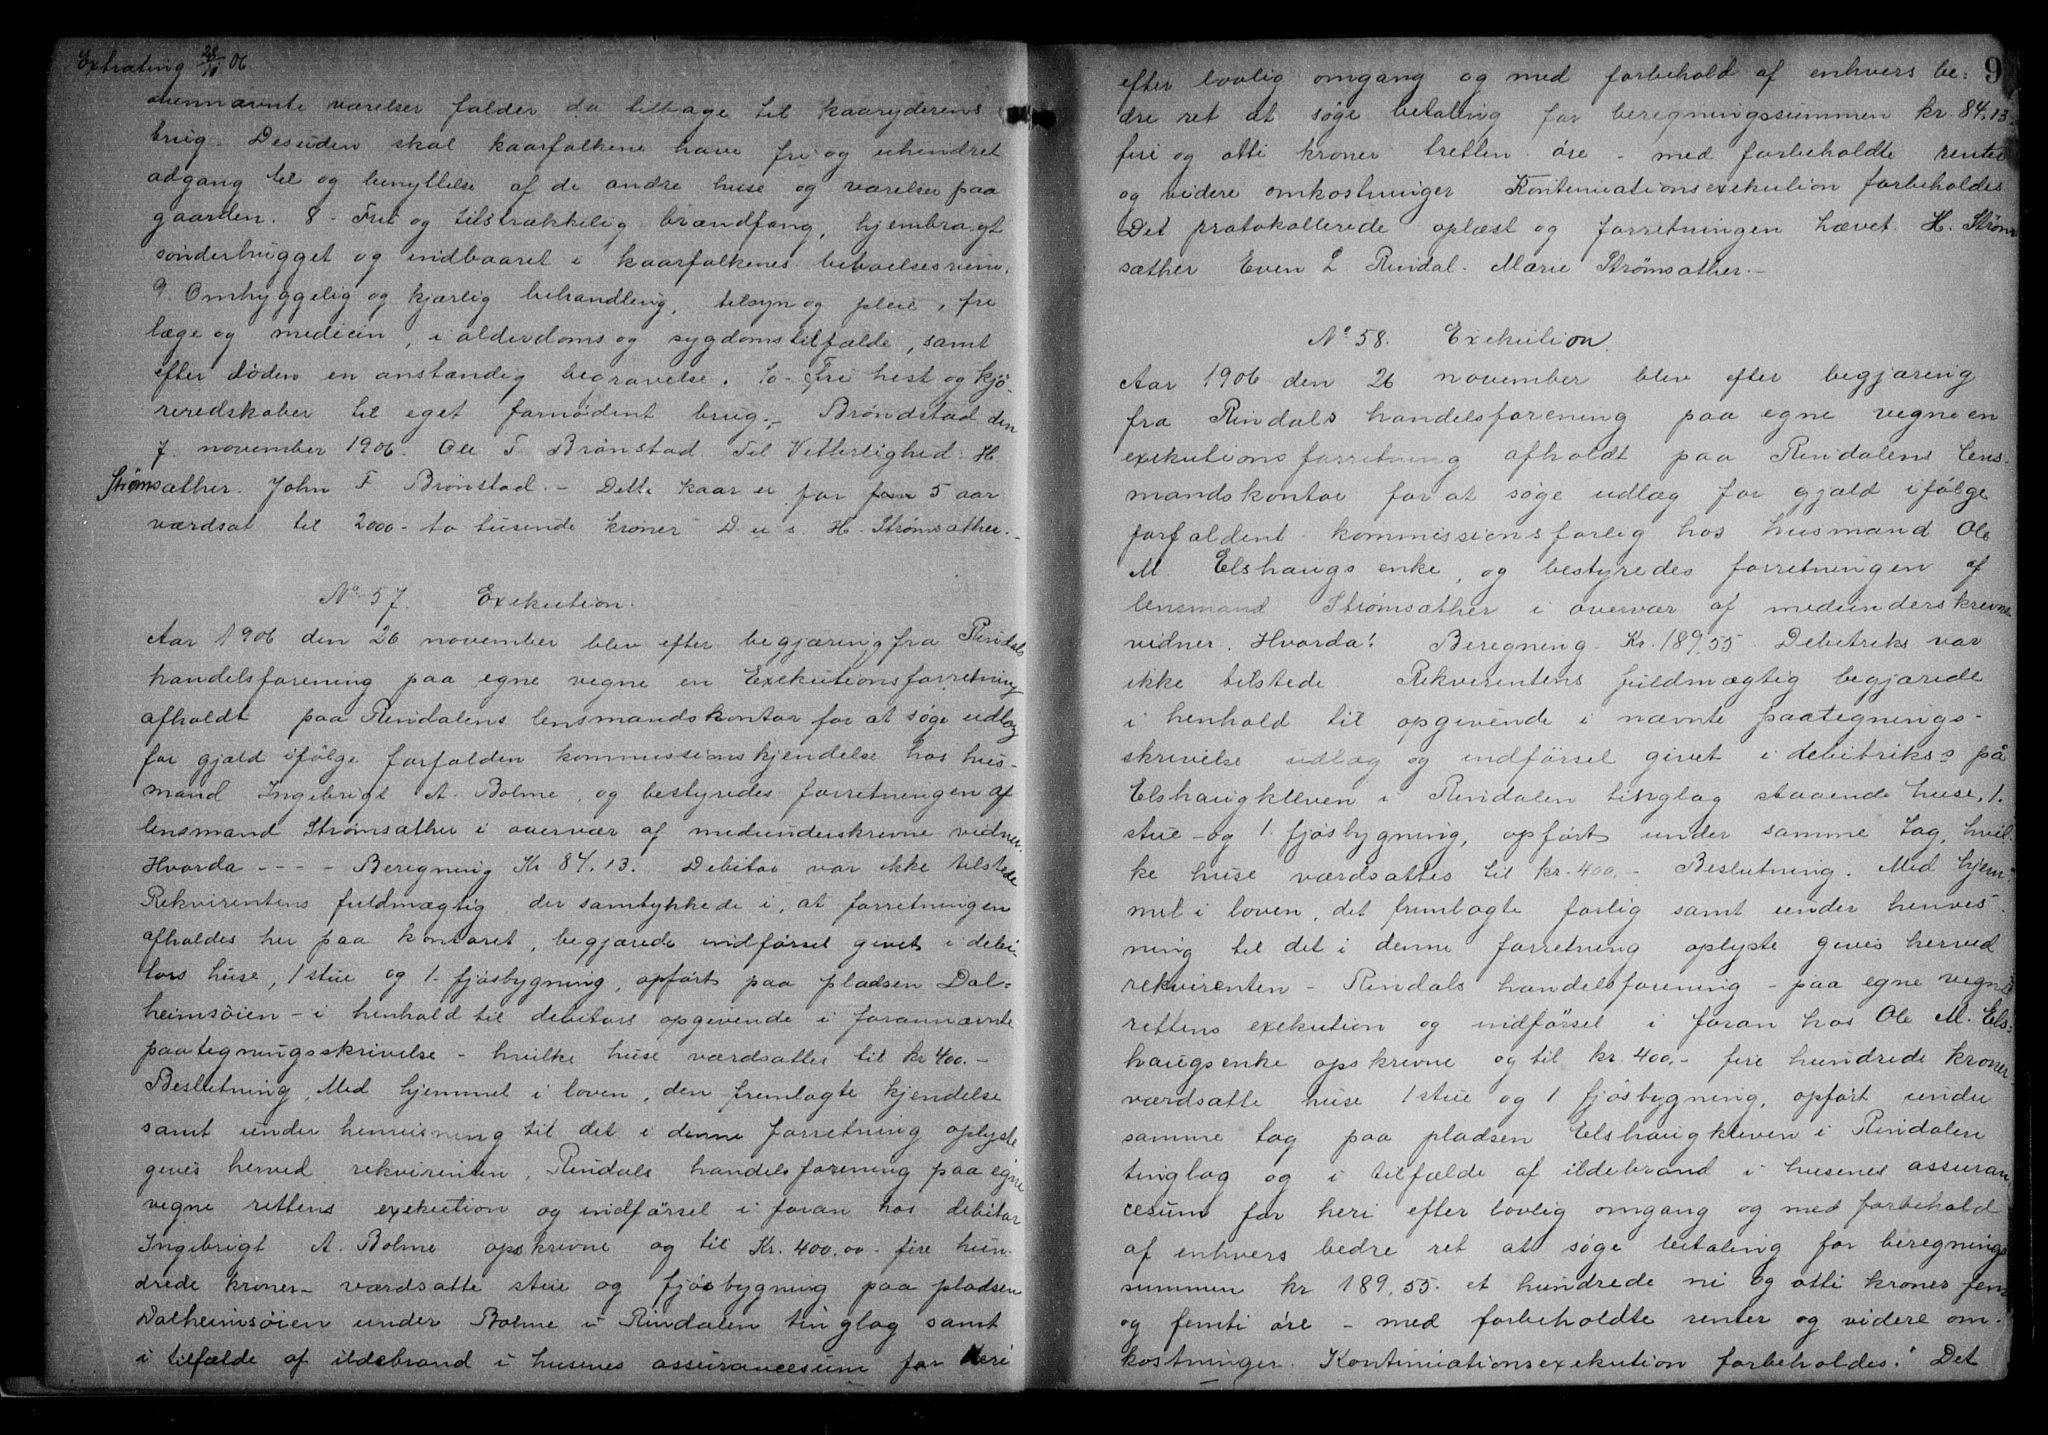 Extrating 28/11 06
ovennævnte værelser falder da tilbage til kaaryderens
brug. Desuden skal kaarfolkene have fri og uhindret
adgang til og benyttelse af de andre huse og værelser paa
gaarden. 8 - Frit og tilstrækkelig brændfang, hjembragt
sønderhugget og indbaaret i kaarfolkenes beboelsesrum.
9. Omhyggelig og kjærlig behandling, tilsyn og pleie, fri
læge og medicin, i alderdoms og sygdomstilfælde, samt
efter døden en anstændig begravelse. 10 - Fri hest og kjø-
reredskaber til eget fornødent brug. - Brøndstad den
7. november 1906. Ole T Brønstad. Til Vitterlighed: H
Strømsæther. John F Brønstad. - Dette kaar er for fem 5 aar
værdsat til 2000 - to tusende kroner D. u. s. H. Strømsæther. -
No 57. Exekution.
Aar 1906 den 26 november blev efter begjæring fra Rindals
handelsforening paa egne vegne en Exekutionsforretning
afholdt paa Rindalens lensmandskontor for at søge udlæg
for gjæld ifølge forfalden kommissionskjendelse hos hus-
mand Ingebrigt A. Bolme, og bestyredes forretningen af
lensmand Strømsæther i overvær af medunderskrevne vidner.
Hvorda - - - Beregning Kr 84.13. Debitor var ikke tilstede
Rekvirentens fuldmægtig, der samtykkede i, at forretningen
afholdes her paa kontoret, begjærede indførsel givet i debi-
tors huse, 1 stue og 1 - fjøsbygning, opført paa pladsen Dal-
heimsøien - i henhold til debitors opgivende i forannævnte
paategningsskrivelse - hvilke huse værdsattes til kr 400. -
Beslutning, Med hjemmel i loven, den fremlagte kjendelse
samt under henvisning til det i denne forretning oplyste
gives herved rekvirenten, Rindals handelsforening paa egne
vegne rettens exekution og indførsel i foran hos debitor
Ingebrigt A. Bolme opskrevne og til Kr. 400,00 - fire hun-
drede kroner - værdsatte stue og fjøsbygning paa pladsen
Dalheimsøien under Bolme i Rindalen tinglag samt
i tilfælde af ildebrand i husenes assurancesum for heri
9
efter lovlig omgang og med forbehold af enhvers be-
dre ret at søge betaling for beregningssummen kr. 84.13
firi og otti kroner tretten øre - med forbeholdte renter
og videre omkostninger Kontinuationsexekution forbeholdes.
Det protokollerede oplæst og forretningen hævet. H. Strøm-
sæther Even L Rindal. Marie Strømsæther. -
No 58. Exekution.
Aar 1906 den 26 november blev efter begjæring
fra Rindals handelsforening paa egne vegne en
exekutionsforretning afholdt paa Rindalens lens-
mandskontor for at søge udlæg for gjæld ifølge
forfaldent kommissionsforlig hos husmand Ole
M. Elshaugs enke, og bestyredes forretningen af
lensmand Strømsæther i overvær af medunderskrevne
vidner. Hvorda! Beregning. Kr. 189.55. Debitriks var
ikke tilstede Rekvirentens fuldmægtig begjærede
i henhold til opgivende i nævnte paategnings-
skrivelse udlæg og indførsel givet i debitriks's på
Elshaugkleven i Rindalen tinglag staaende huse, 1.
stue - og 1. fjøsbygning, opført under samme tag, hvil-
ke huse værdsattes til kr. 400. - Beslutning. Med hjem-
mel i loven, det fremlagte forlig samt under henvis-
ning til det i denne forretning oplyste gives herved
rekvirenten - Rindals handelsforening - paa egne vegne
rettens exekution og indførsel i foran hos Ole M. Els-
haugsenke opskrevne og til kr. 400, - fire hundrede kroner
værdsatte huse 1 stue og 1 fjøsbygning, opført under
samme tag paa pladsen Elshaugkleven i Rindalen
tinglag og i tilfælde af ildebrand i husenes assuran-
cesum for heri efter lovlig omgang og med forbehold
af enhvers bedre ret at søge betaling for beregnings
summen kr 189,55. et hundrede ni og otti kroner fem
og femti øre - med forbeholdte renter og videre om-
kostninger. Kontinuationsexekution forbeholdes. Det